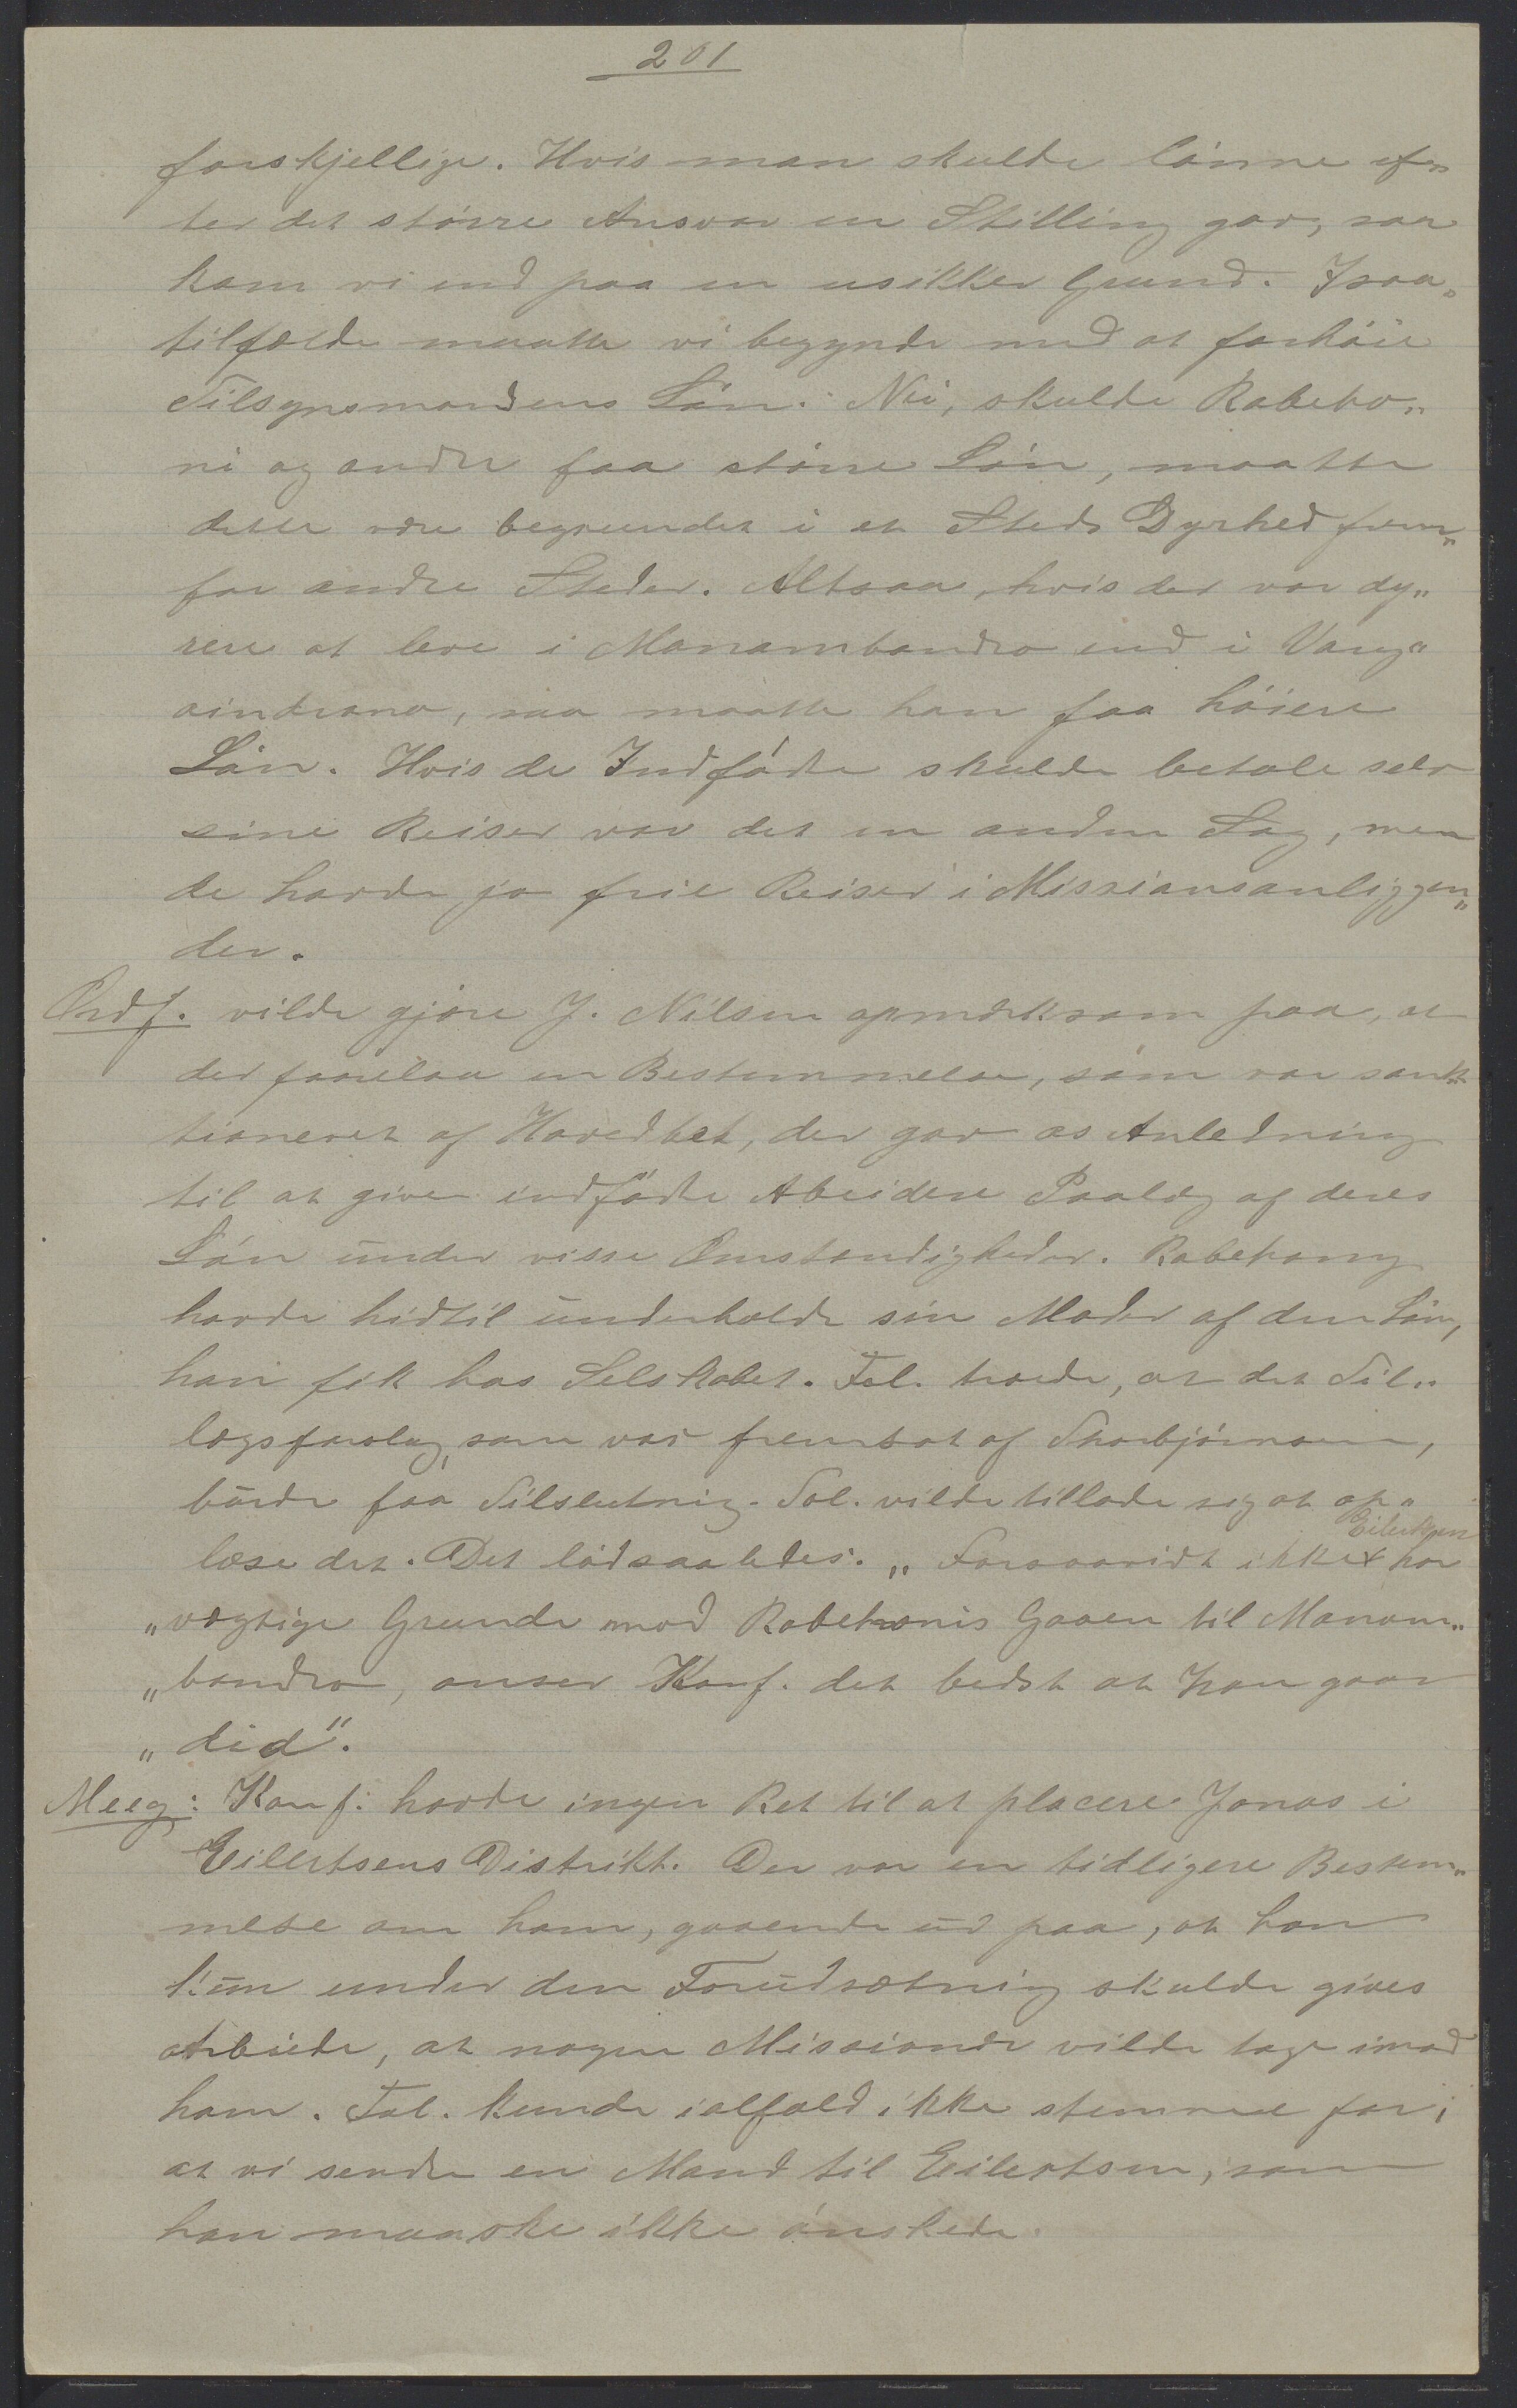 201
forskjellige. Hvis man skulde lönne ef„
ter det större Ansvar en Stilling gav, saa
kom vi ind paa en usikker Grund. Isaa„
tilfælde maatte vi begynde med at forhöie
Tilsynsmandens Lön. Nei, skulde Rabeho„
ni og andre faa större Lön, maatte
dette være begrundet i et Steds Dyrhed frem„
for andre Steder. Altsaa, hvis det var dy„
rere at leve i Manambondro end i Vang„
aindrano, saa maatte han faa höiere
Lön. Hvis de Indfödte skulde betale selv
sine Reiser var det en anden Sag, men
de havde jo frie Reiser i Missionsanliggen„
der.
Ordf. vilde gjöre J. Nilsen opmærksom paa, at
der forelaa en Bestemmelse, som var sank„
tioneret af Hovedbst, der gav os Anledning
til at give indfödte Abeidere Paalæg af deres
Lön under visse Omstændigheder. Rabehony
havde hidtil underholdt sin Moder af den Lön,
han fik hos Selskabet. Tal. troede, at det Til„
lægsforslag, som var fremsat af Thorbjörnsen,
burde faa Tilslutning. Tal. vilde tillade sig at op„
læse det. Det löd saaledes: „Forsaavidt ikke × Eilertsen har
„vægtige Grunde mod Rabehonis Gaaen til Manam„
„bondro, anser Konf. det bedst at han gaar
„did".
Meeg: Konf. havde ingen Ret til at placere Jonas i
Eilertsens Distrikt. Der var en tidligere Bestem„
melse om ham, gaaende ud paa, at han
kun under den Forudsætning skulde gives
Arbeide, at nogen Missionær vilde tage imod
ham. Tal. kunde ialfald ikke stemme for,
at vi sendte en Mand til Eilertsen, som
han maaske ikke önskede.